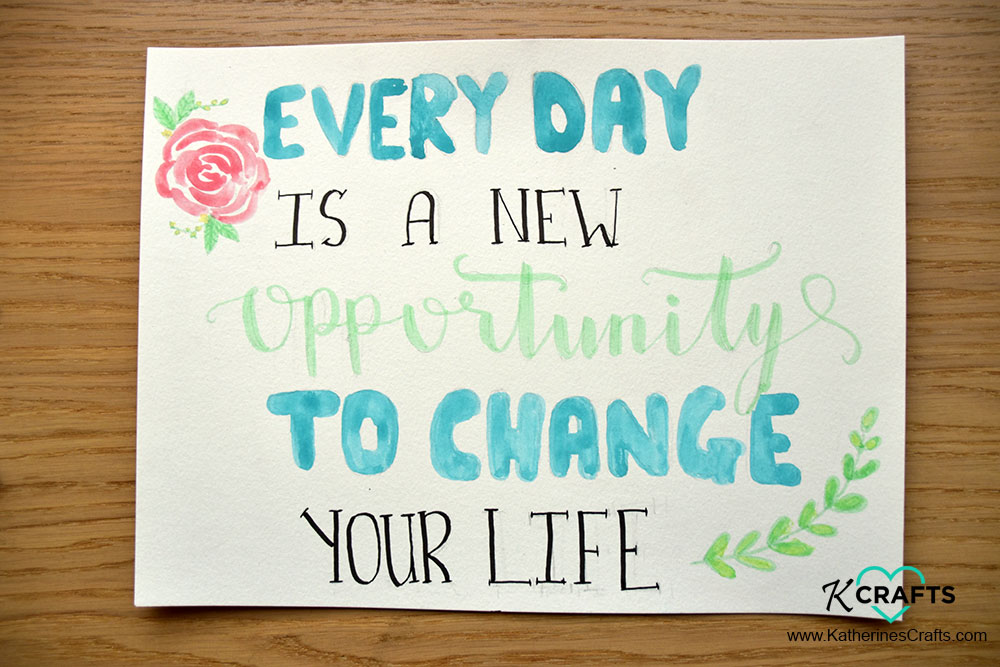 EVERY DAY
IS A NEW
opportunity
TO CHANGE
YOUR LIFE
K CRAFTS
www.KatherinesCrafts.com